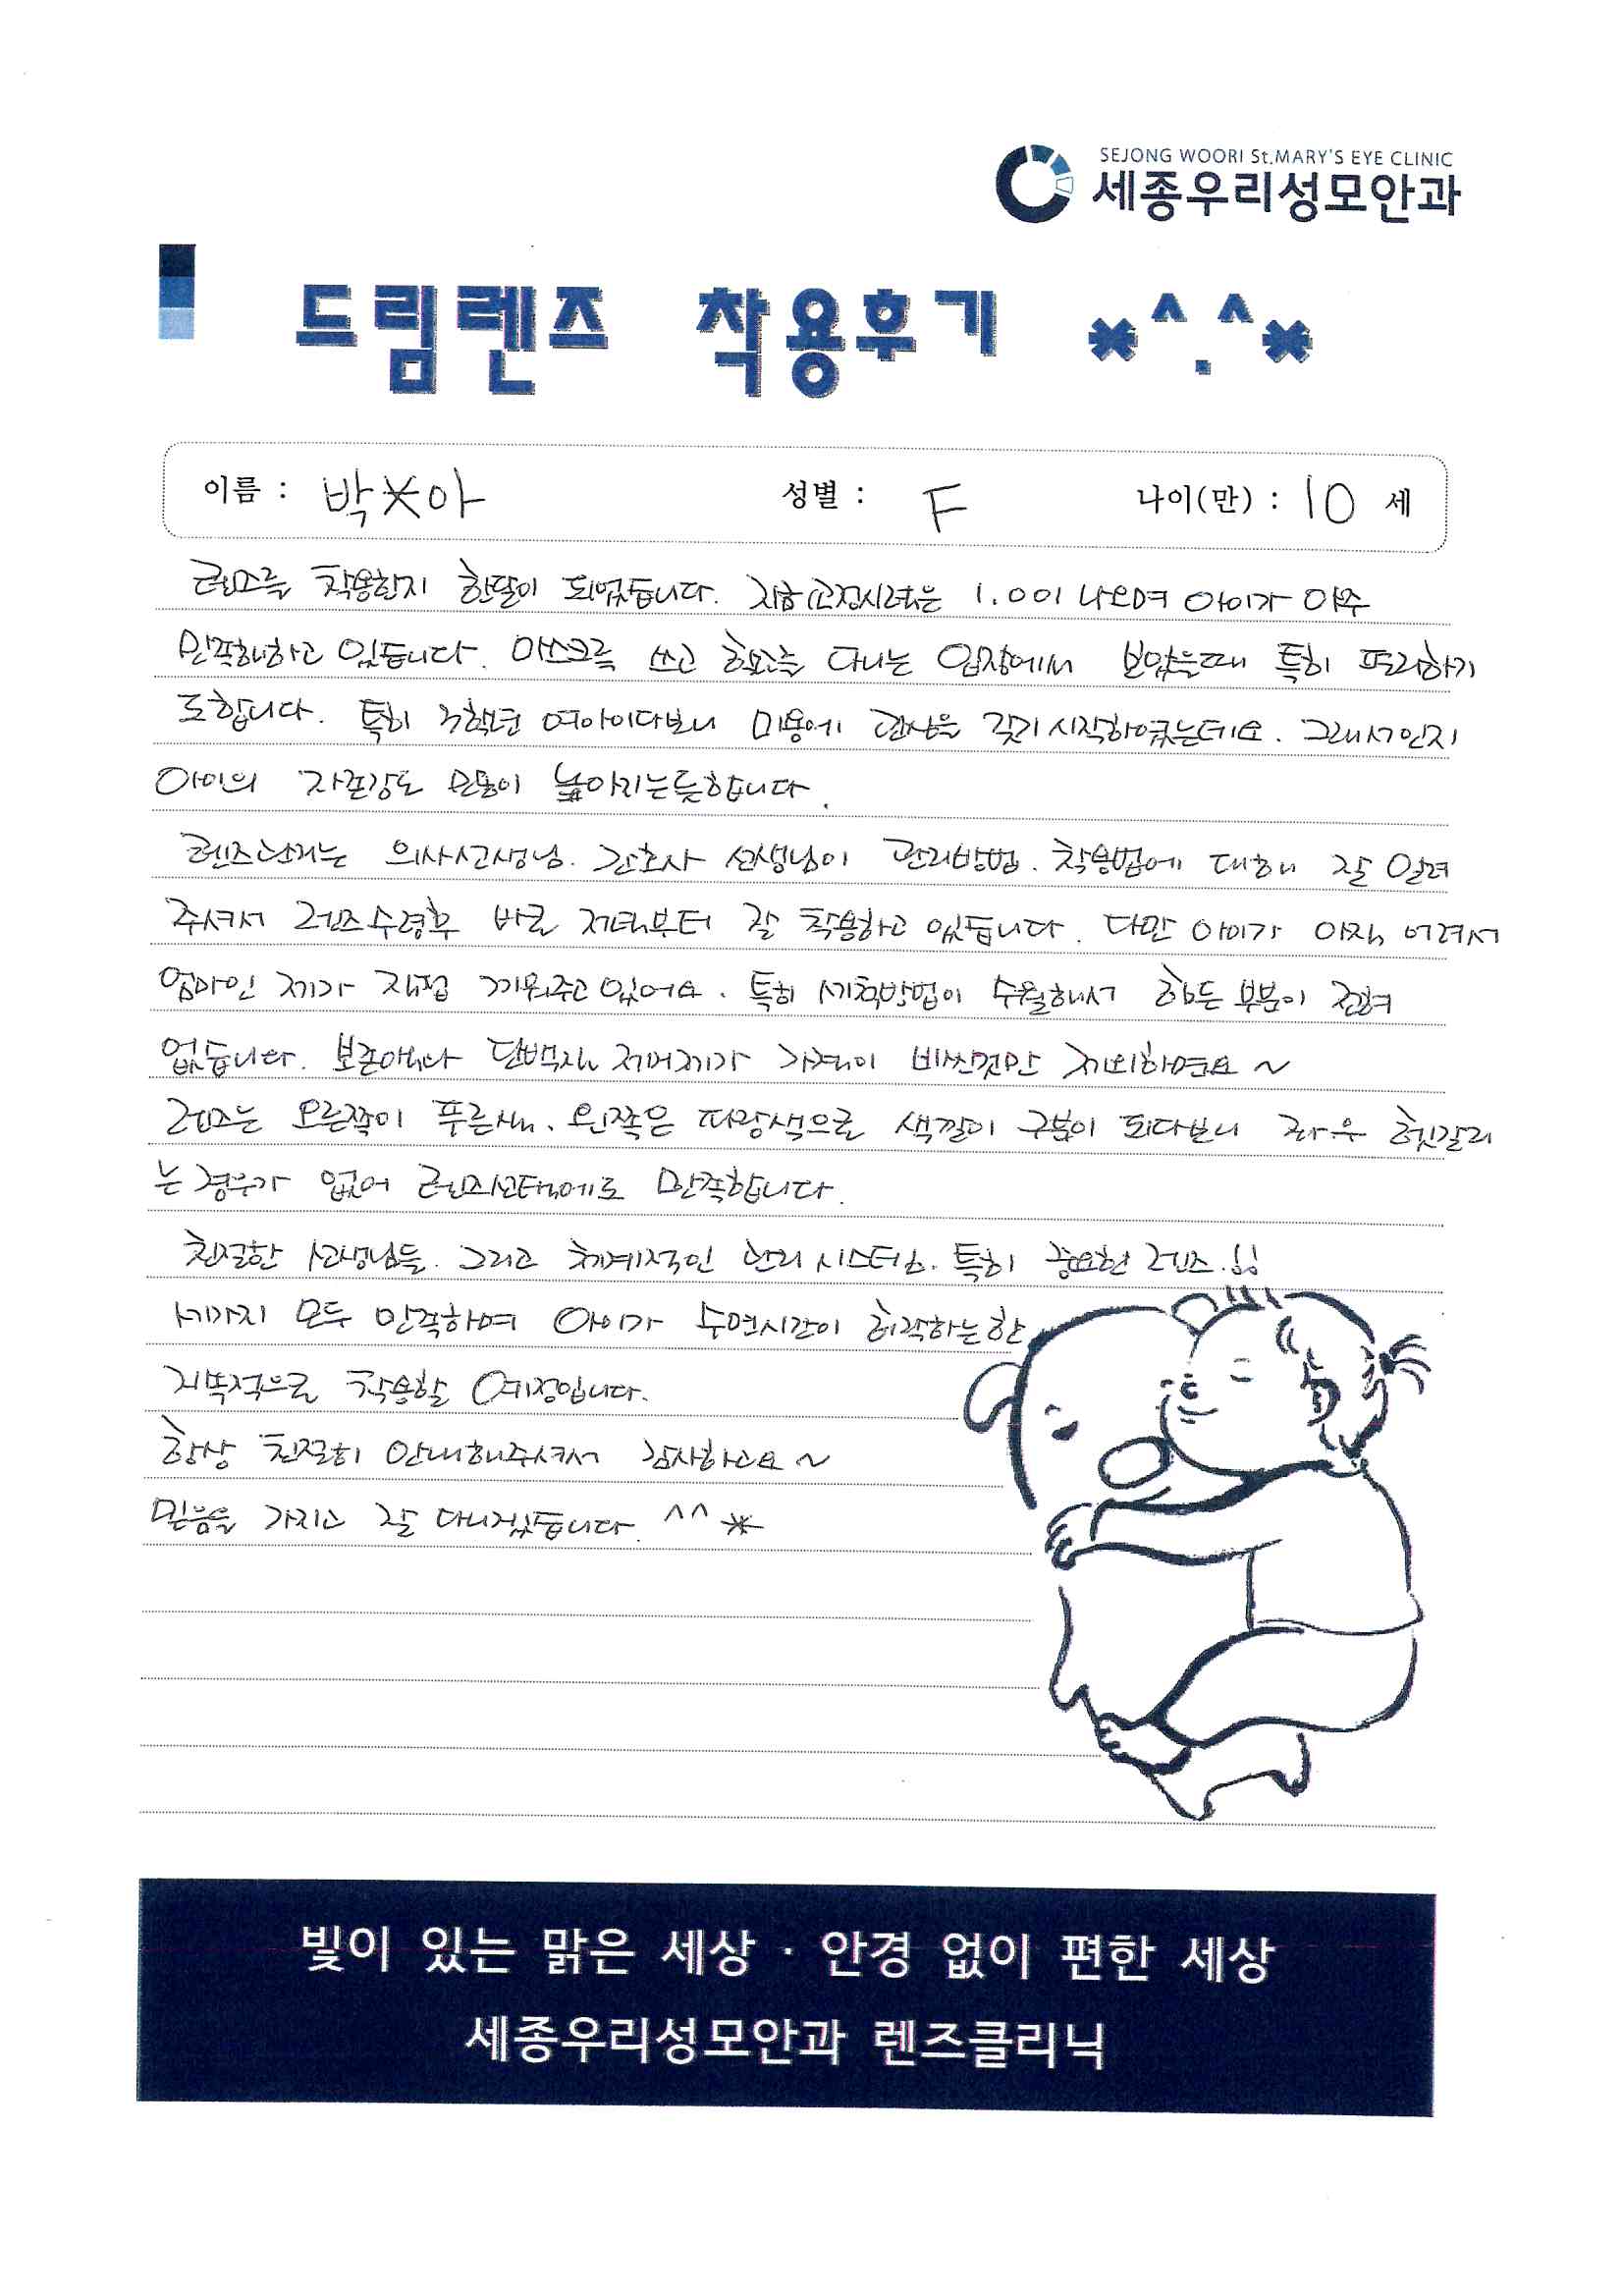 SEJONG WOORI St.MARY'S EYE CLINIC
세종우리성모안과
드림렌즈 착용후기 *^.^*
이름 : 박*아 성별 : F 나이(만) : 10 세
렌즈를 착용한지 한달이 되었습니다. 지금 교정시력은 1.0이 나오며 아이가 아주
만족해하고 있습니다. 마스크를 쓰고 학교를 다니는 입장에서 보았을때 특히 편리하기
도합니다. 특히 고학년 여아이다보니 미용에 관심을 갖기 시작하였는데요. 그래서인지
아이의 자존감도 많이 높아지는듯합니다.
렌즈관리는 의사선생님. 간호사 선생님이 관리방법. 착용법에 대해 잘 알려
주셔서 렌즈수령후 바로 저녁부터 잘 착용하고 있습니다. 다만 아이가 아직 어려서
엄마인 제가 직접 끼워주고 있어요. 특히 세척방법이 수월해서 힘든 부분이 전혀
없습니다. 보존액나 단백질 제거제가 가격이 비싼것만 제외하면요~
렌즈는 오른쪽이 푸른색. 왼쪽은 파랑색으로 색깔이 구분이 되다보니 좌우 헷갈리
는 경우가 없어 렌즈선택에도 만족합니다.
친절한 선생님들. 그리고 체계적인 관리 시스템. 특히 중요한 렌즈.!!
세가지 모두 만족하며 아이가 수면시간이 허락하는한
지속적으로 착용할 예정입니다.
항상 친절히 안내해주셔서 감사하고요~
믿음을 가지고 잘 다니겠습니다. ^^*
빛이 있는 맑은 세상 · 안경 없이 편한 세상
세종우리성모안과 렌즈클리닉